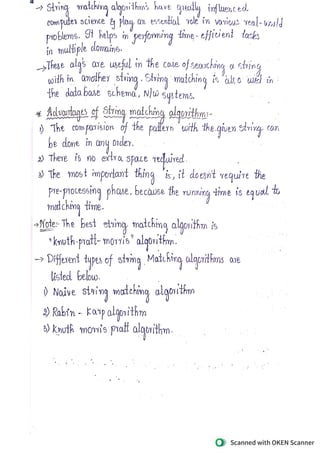 → String matching algorithm's have greatly influenced
computer science & play an essential role in various real-world
problems. It helps in performing time-efficient tasks
in multiple domains.
→ These alg's are useful in the case of searching a string
with in another string. String matching is also used in
the database schema, N/w systems.
* Advantages of String matching algorithms:-
1) The comparision of the pattern with the given string can
be done in any order.
2) There is no extra space required.
3) The most important thing is, it doesn't require the
pre-processing phase. because the running time is equal to
matching time.
→ Note:- The best string matching algorithm is
"Knuth-pratt-morris" algorithm.
→ Different types of string Matching algorithms are
listed below.
1) Naive string matching algorithm
2) Rabin - Karp algorithm
3) Knuth morris pratt algorithm.
Scanned with OKEN Scanner